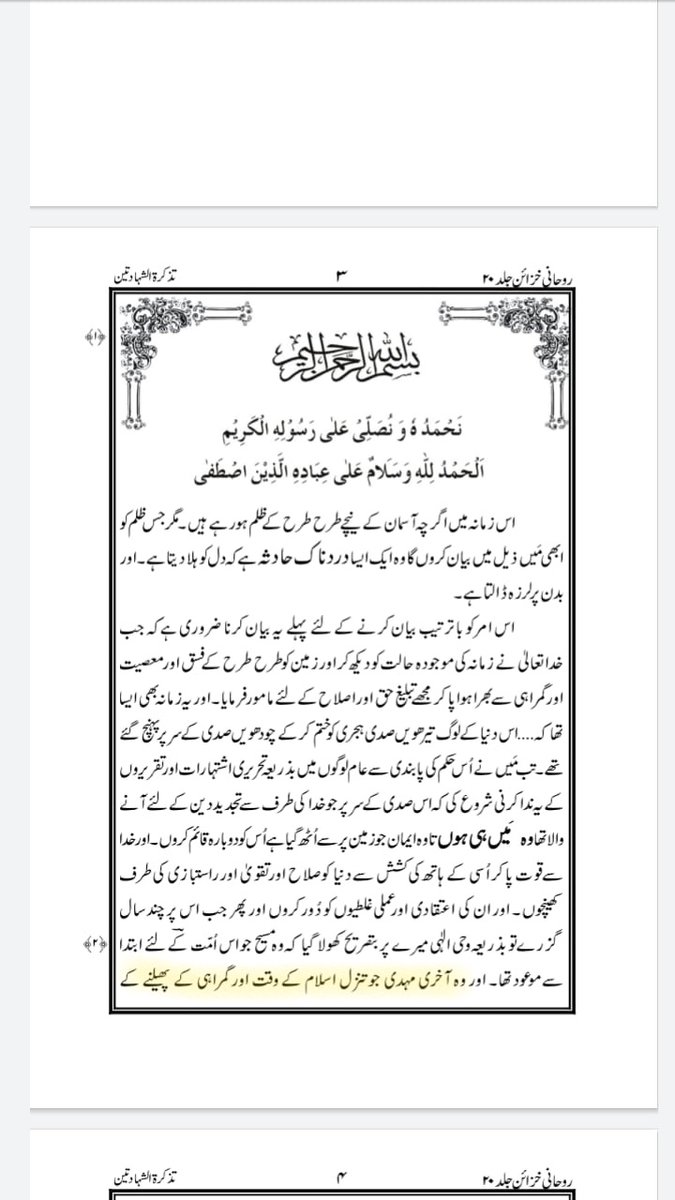 روحانی خزائن جلد ۲۰
۳
تذکرۃ الشہادتین
﴿۱﴾
بسم اللہ الرحمن الرحیم
نَحْمَدُہٗ وَ نُصَلِّیْ عَلٰی رَسُوْلِہِ الْکَرِیْمِ
اَلْحَمْدُ لِلّٰہِ وَسَلَامٌ عَلٰی عِبَادِہِ الَّذِیْنَ اصْطَفٰی
اس زمانہ میں اگرچہ آسمان کے نیچے طرح طرح کے ظلم ہو رہے ہیں۔ مگر جس ظلم کو
ابھی مَیں ذیل میں بیان کروں گا وہ ایک ایسا دردناک حادثہ ہے کہ دل کو ہلا دیتا ہے۔ اور
بدن پر لرزہ ڈالتا ہے۔
اس امر کو با ترتیب بیان کرنے کے لئے پہلے یہ بیان کرنا ضروری ہے کہ جب
خدا تعالیٰ نے زمانہ کی موجودہ حالت کو دیکھ کر اور زمین کو طرح طرح کے فسق اور معصیت
اور گمراہی سے بھرا ہوا پا کر مجھے تبلیغ حق اور اصلاح کے لئے مامور فرمایا۔ اور یہ زمانہ بھی ایسا
تھا کہ....اس دنیا کے لوگ تیرھویں صدی ہجری کو ختم کر کے چودھویں صدی کے سر پر پہنچ گئے
تھے۔ تب مَیں نے اُس حکم کی پابندی سے عام لوگوں میں بذریعہ تحریری اشتہارات اور تقریروں
کے یہ ندا کرنی شروع کی کہ اس صدی کے سر پر جو خدا کی طرف سے تجدید دین کے لئے آنے
والا تھا وہ مَیں ہی ہوں تا وہ ایمان جو زمین پر سے اُٹھ گیا ہے اُس کو دوبارہ قائم کروں۔ اور خدا
سے قوت پا کر اُسی کے ہاتھ کی کشش سے دنیا کو صلاح اور تقویٰ اور راستبازی کی طرف
کھینچوں۔ اور ان کی اعتقادی اور عملی غلطیوں کو دُور کروں اور پھر جب اس پر چند سال
گزرے تو بذریعہ وحی الٰہی میرے پر بتصریح کھولا گیا کہ وہ مسیح جو اس اُمّت کے لئے ابتدا
﴿۲﴾
سے موعود تھا۔ اور وہ آخری مہدی جو تنزل اسلام کے وقت اور گمراہی کے پھیلنے کے
روحانی خزائن جلد ۲۰
۴
تذکرۃ الشہادتین